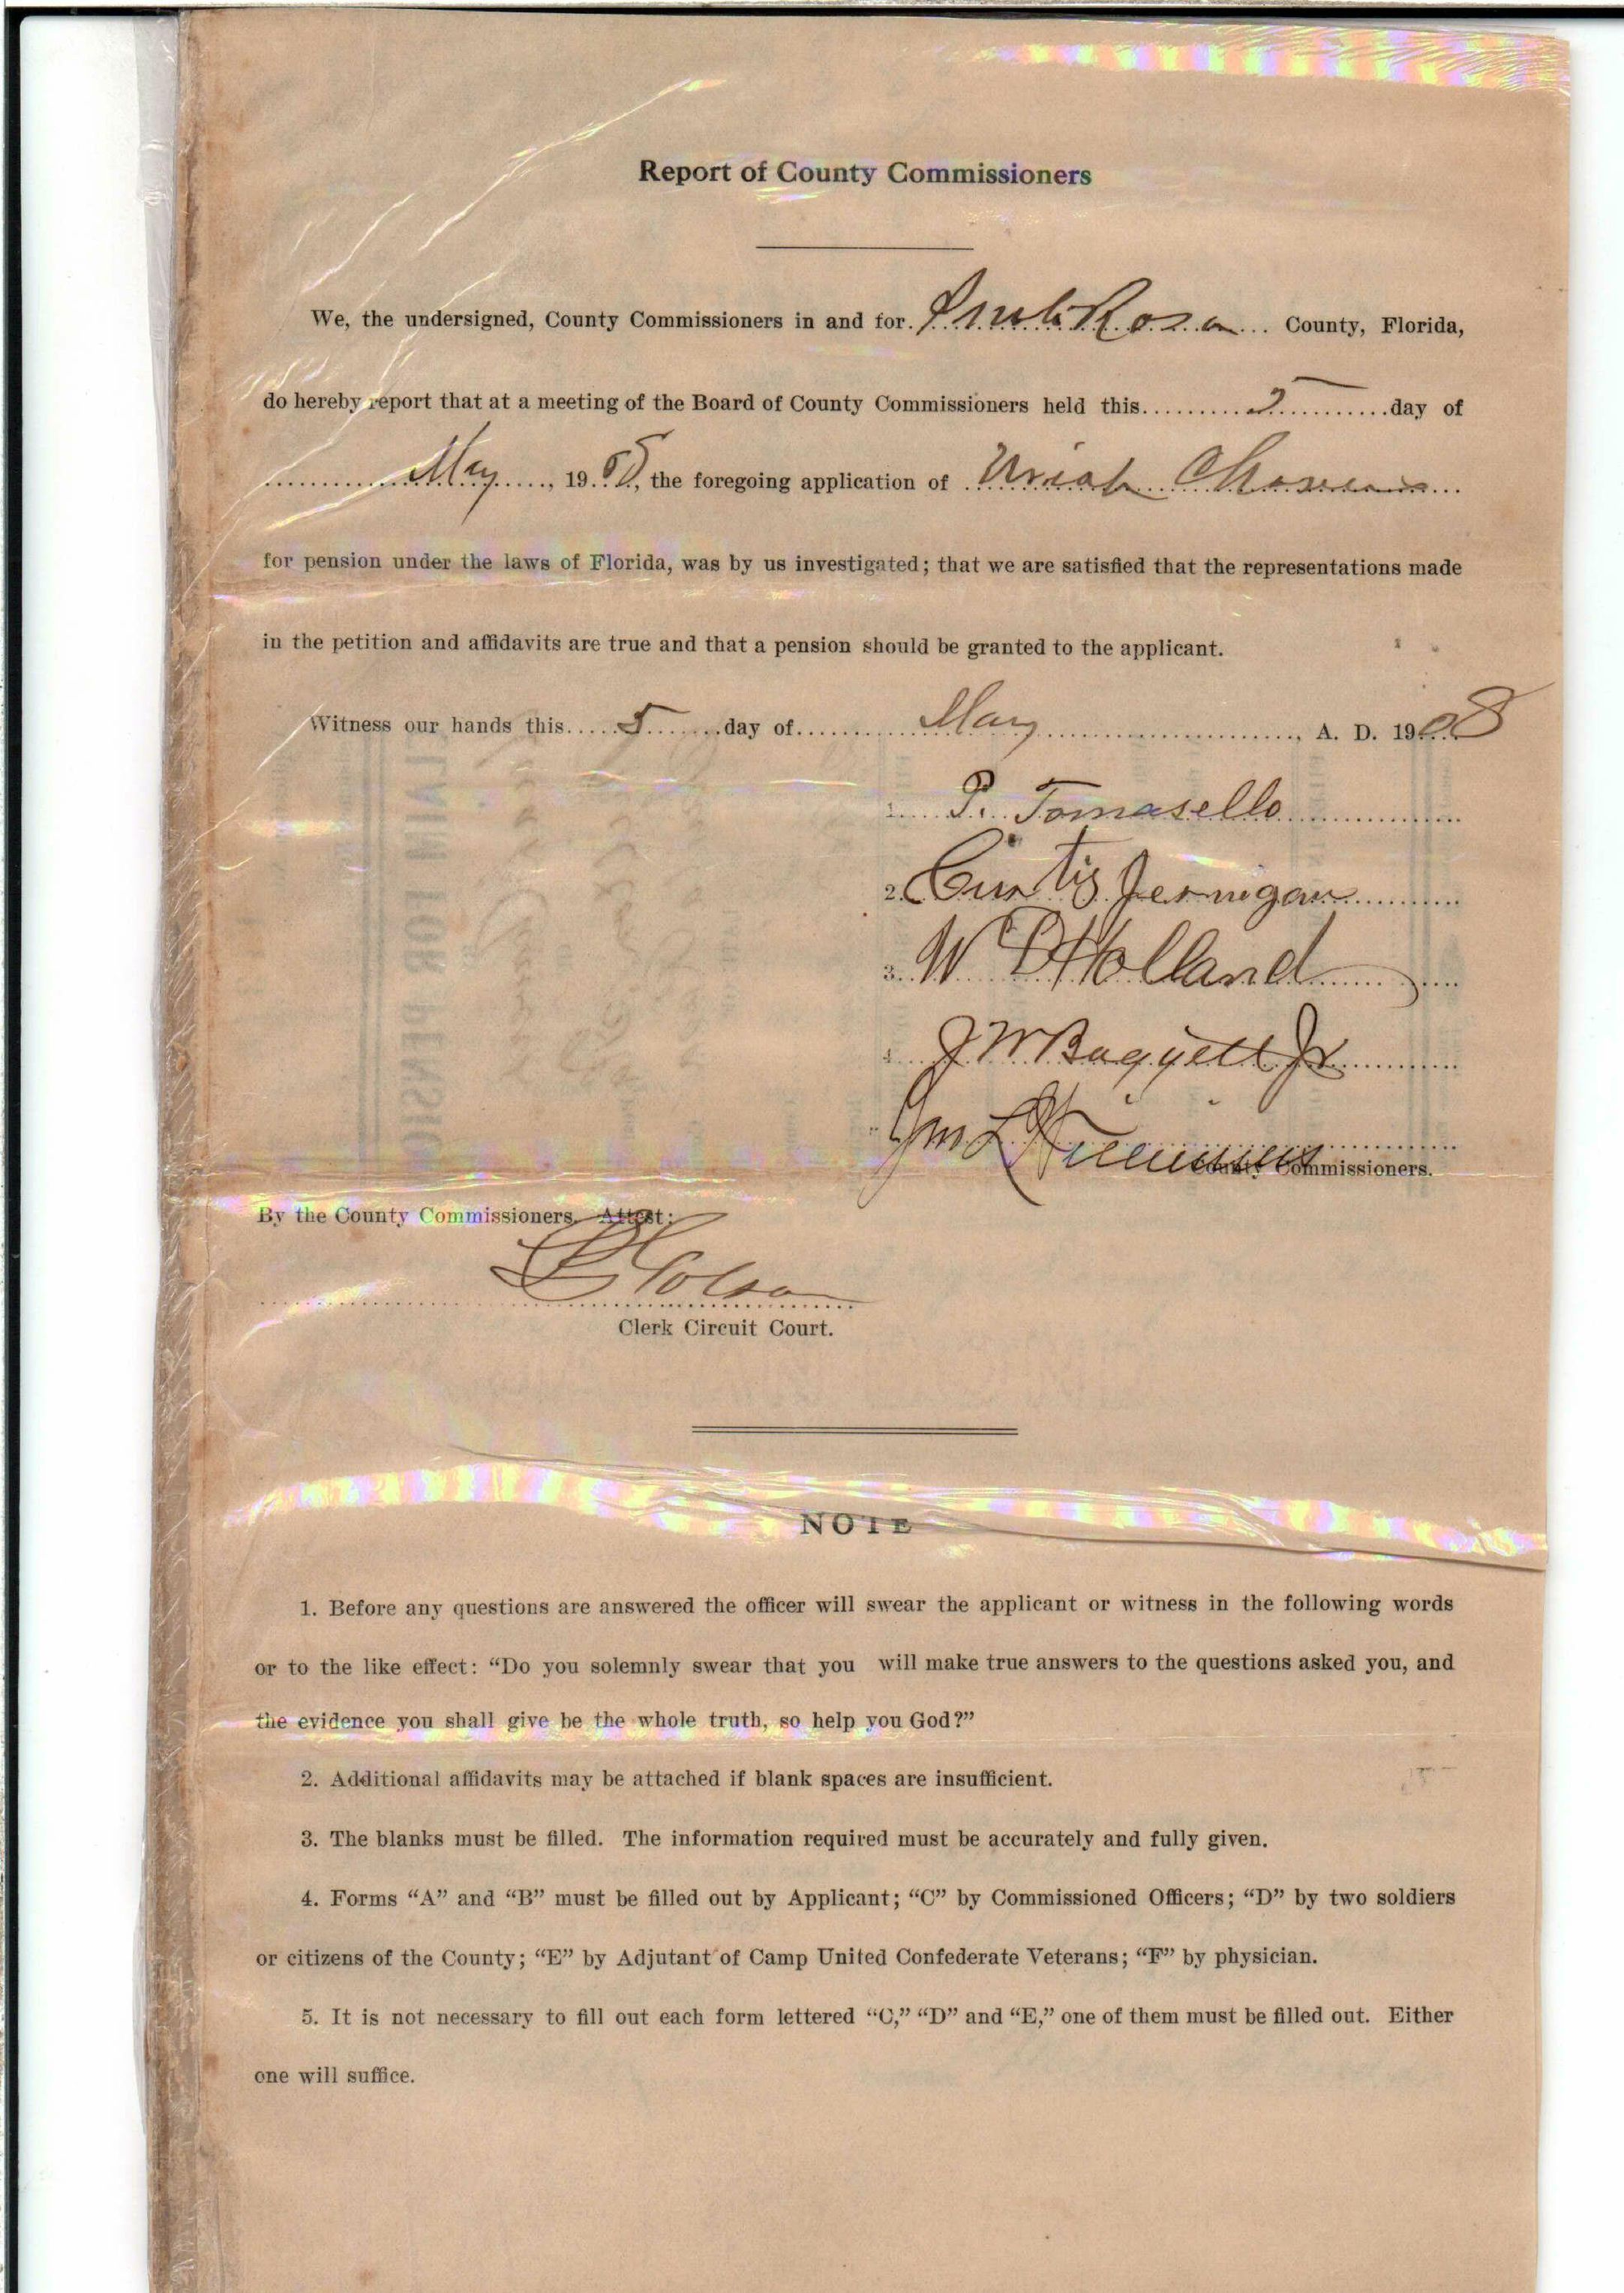 Report of County Commissioners
We, the undersigned, County Commissioners in and for Santa Rosa County, Florida,
do hereby report that at a meeting of the Board of County Commissioners held this 5 day of
May, 1908, the foregoing application of Uriah
for pension under the laws of Florida, was by us investigated; that we are satisfied that the representations made
in the petition and affidavits are true and that a pension should be granted to the applicant.
Witness our hands this 5 day of May, A. D. 1908
1. P. Tomasello
2. Curtis Jernigan
3. W D Holland
4. J W Baggett Jr
County Commissioners.
By the County Commissioners. Attest:
Clerk Circuit Court.
NOTE
1. Before any questions are answered the officer will swear the applicant or witness in the following words
or to the like effect: “Do you solemnly swear that you will make true answers to the questions asked you, and
the evidence you shall give be the whole truth, so help you God?”
2. Additional affidavits may be attached if blank spaces are insufficient.
3. The blanks must be filled. The information required must be accurately and fully given.
4. Forms “A” and “B” must be filled out by Applicant; “C” by Commissioned Officers; “D” by two soldiers
or citizens of the County; “E” by Adjutant of Camp United Confederate Veterans; “F” by physician.
5. It is not necessary to fill out each form lettered “C,” “D” and “E,” one of them must be filled out. Either
one will suffice.